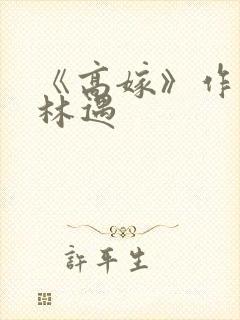 《高嫁》作
林遇
許平生